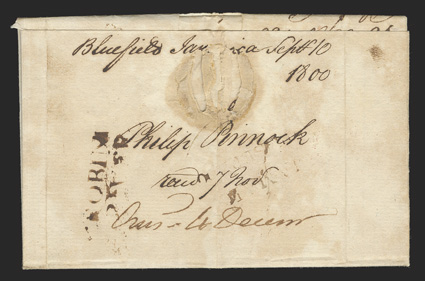 Bluefield Jamaica Sept 10
1800
Philip Pinnock
recd 7 Nov
Ans. 4 Decem